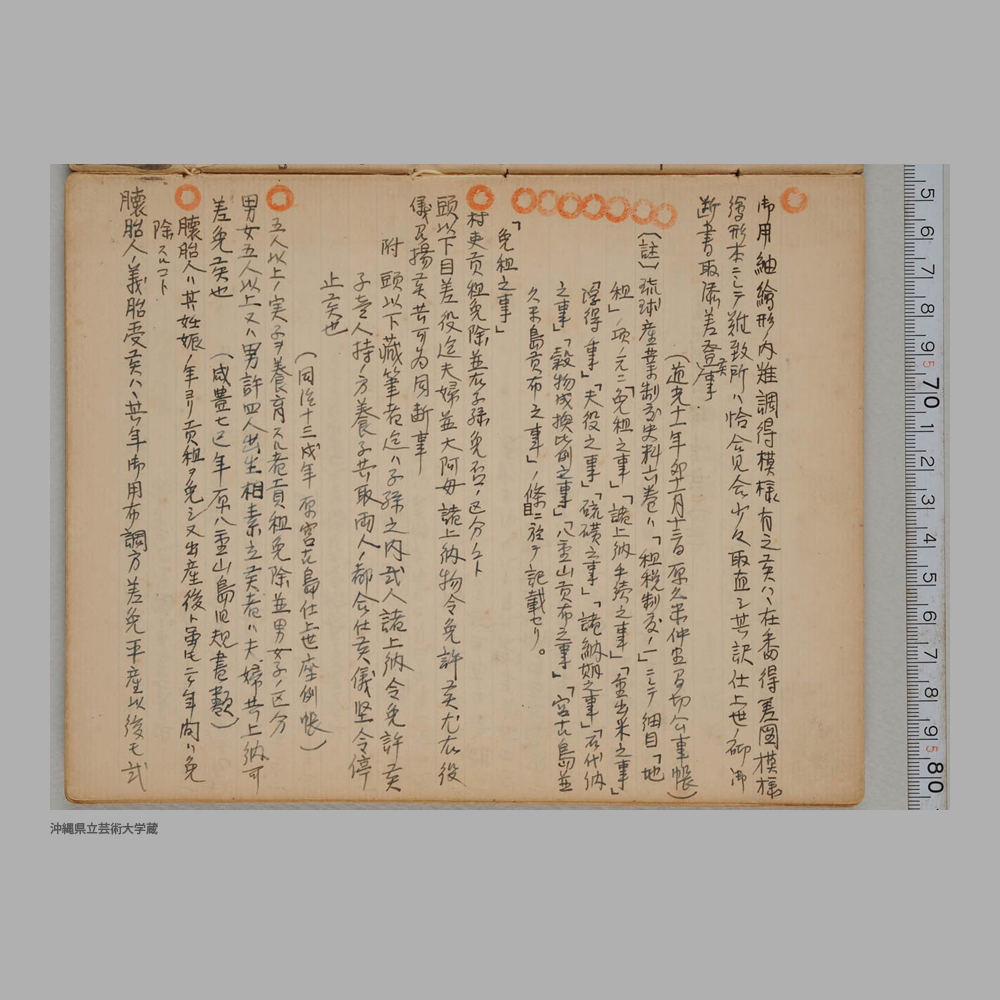 御用紬繪形内難調得模様有之候ハヽ在番得差圖模様
繪形本ニシテ難致所ハ恰合見合少々取直シ其訳仕上世御
断書取添差登候事
(道光十一年卯十一月十三日 原久米仲里間切公事帳)
(註)琉球産業制度史料六巻ハ「租税制度ノ一」ニシテ細目「地
租」ノ項ノ元ニ「免租之事」「諸上納手續之事」「重出米之事」
浮得ノ事」「夫役之事」「硫磺之事」「諸納期之事」「石代納
之事」「穀物成換比例之事」「八重山貢布之事」「宮古島並
久米島貢布之事」ノ條目ニ渡テ記載セリ。
「免租之事」
村吏貢租免除並在子孫免否ノ区分ノコト
頭以下目差役迄夫婦並大阿母諸上納物令免許候尤右役
儀召揚候共可為同断事
附 頭以下藏筆者迄ハ子孫之内弐人諸上納令免許候
子壱人持ノ方養子共取両人ノ都合仕候儀堅令停
止候也
(同治十三戌年 原宮古島仕上世座例帳)
五人以上ノ実子ヲ養育スル者貢租免除並男女子ノ区分
男女五人以上又ハ男許四人出生相素立候者ハ夫婦共上納可
差免候也
(咸豊七巳年 原八重山島旧規書類)
懐胎人ハ其妊娠ノ年ヨリ貢租ヲ免シ又出産後ト雖モ二ケ年間ハ免
除スルコト
懐胎人ノ義胎受候ハヽ其年御用布調方差免平産以後モ弐
5 6 7 8 9 70 1 2 3 4 5 6 7 8 9 80
沖縄県立芸術大学蔵